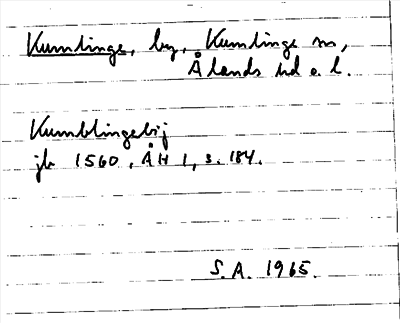 Kumlinge, by, Kumlinge sn,
Ålands hd o. l.
Kumblingebÿ
jb 1560, ÅH 1, s. 184.
S.A. 1965.